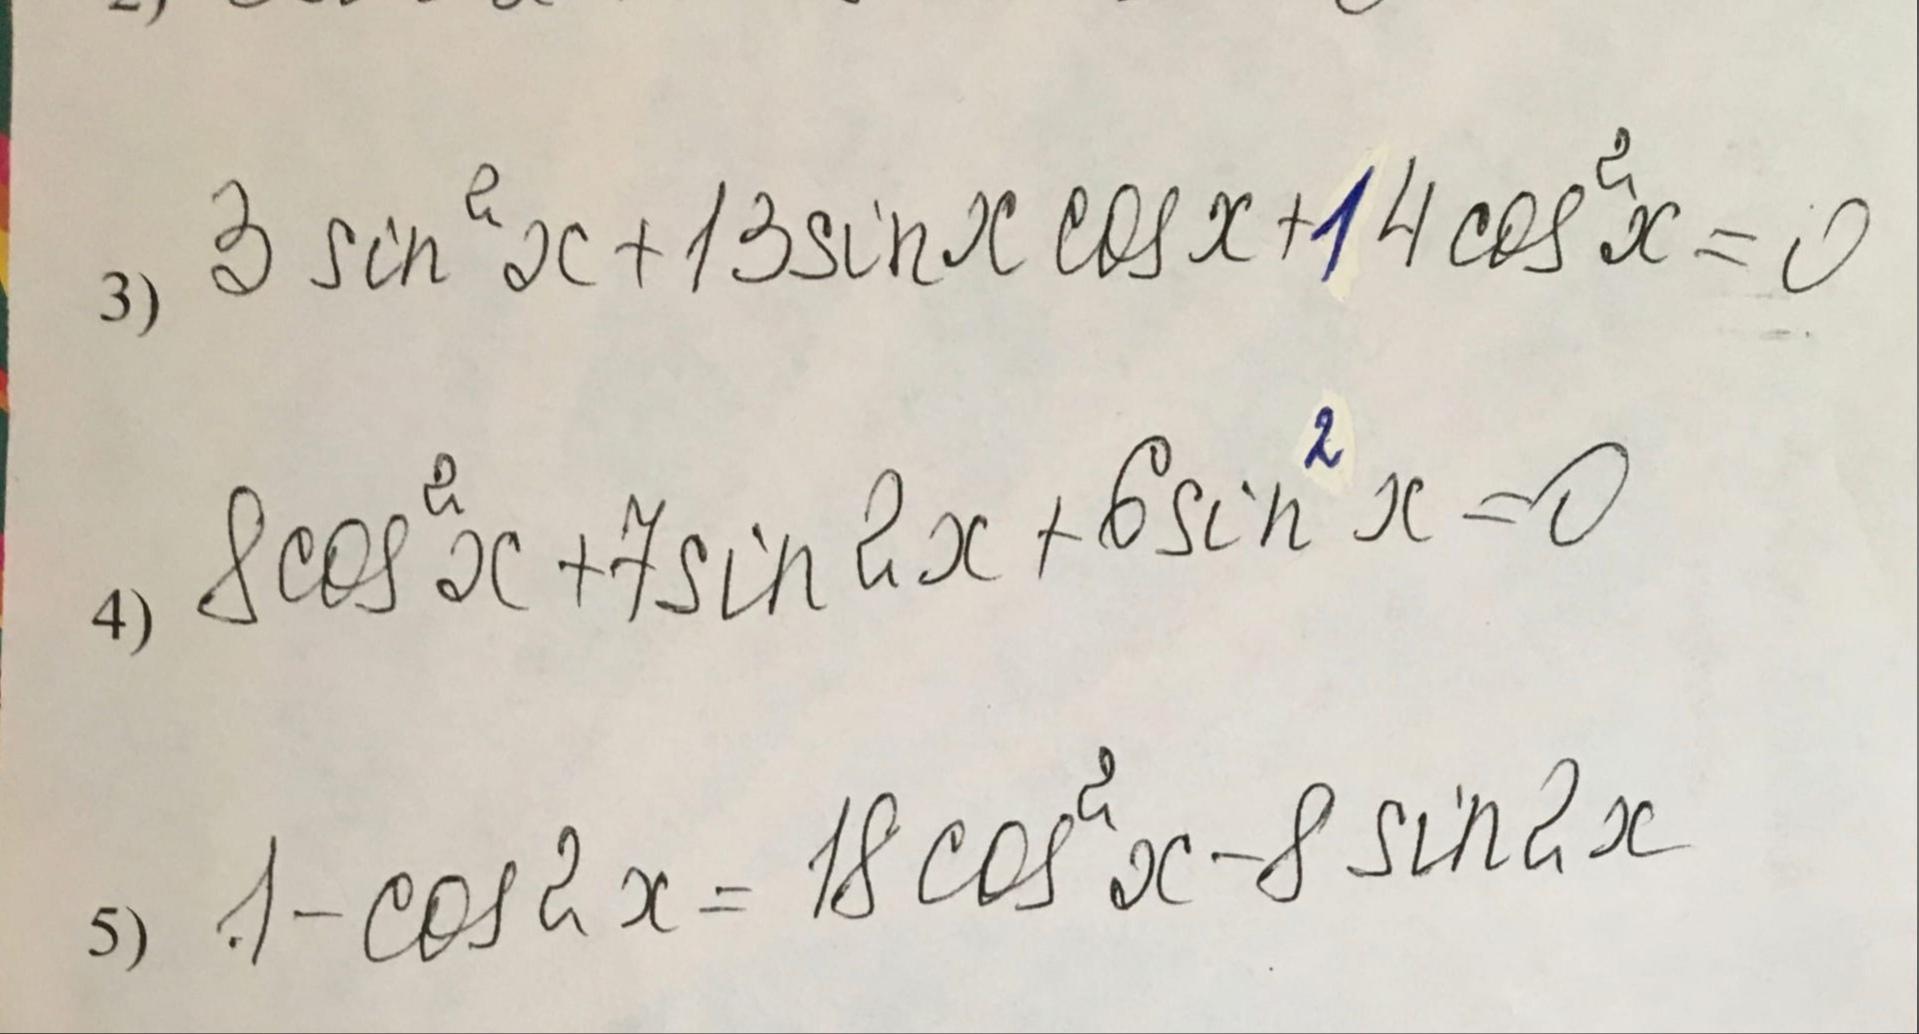 2)
3) 3 sin²x + 13 sin x cos x + 14 cos²x = 0
4) 8cos²x + 7 sin 2x + 6 sin² x = 0
5) 1 - cos 2x = 18 cos²x - 8 sin 2x